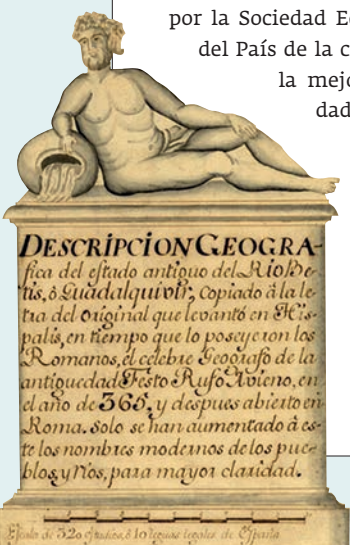 por la Sociedad E
del País de la c
la mejo
dad
DESCRIPCION GEOGRA-
fica del estado antiguo del Rio Be-
tis, ò Guadalquivir, Copiado à la le-
tra del Original que levantó en His-
palis, en tiempo que lo poseyeron los
Romanos, el celebre Geografo de la
antiguedad Festo Rufo Avieno, en
el año de 365, y despues abierto en
Roma. Solo se han aumentado à es-
te los nombres modernos de los pue-
blos, y rios, para mayor claridad.
Escala de 320 estadios, ò 10 leguas legales de España